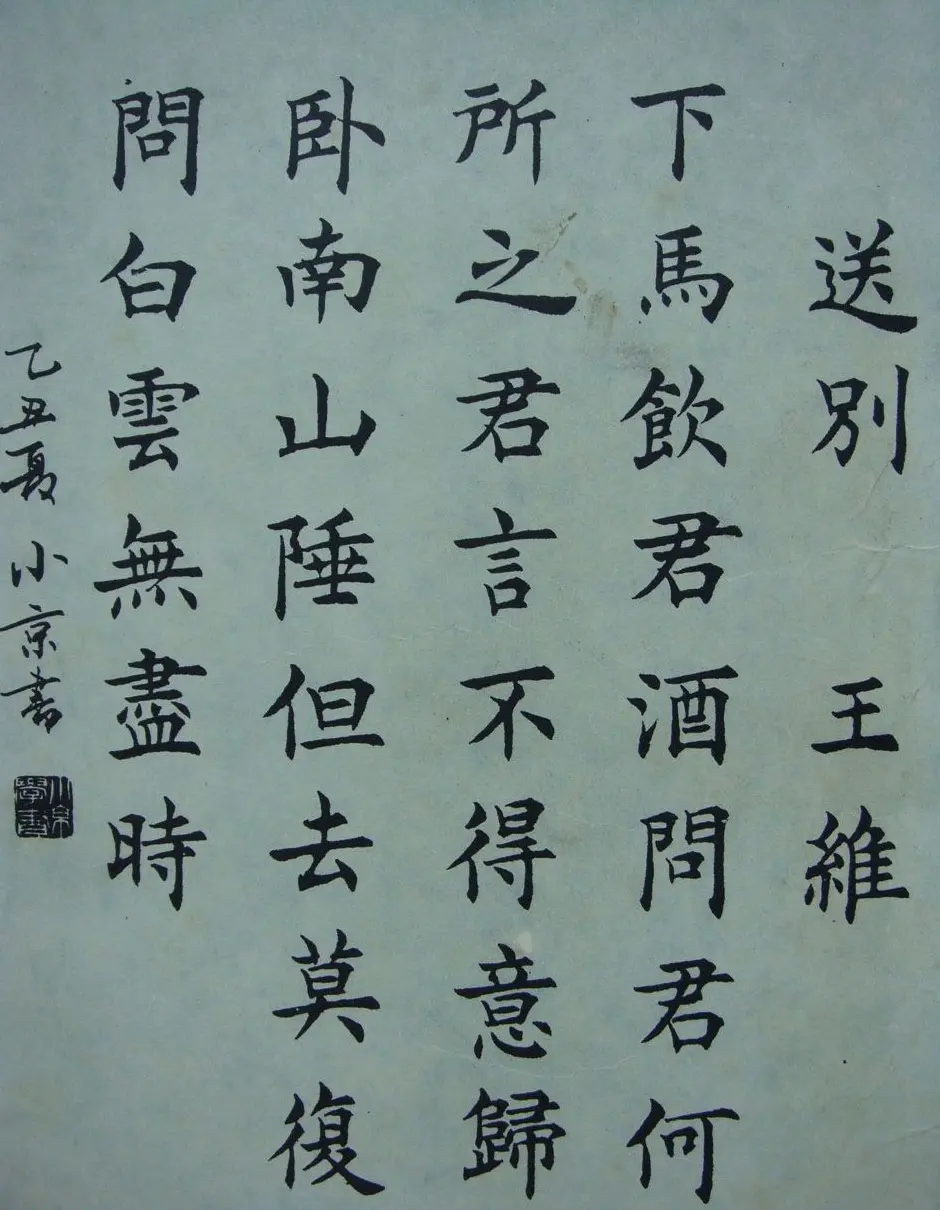 送別 王維
下馬飲君酒問君何
所之君言不得意歸
卧南山陲但去莫復
問白雲無盡時
乙丑夏小京書
小京學書